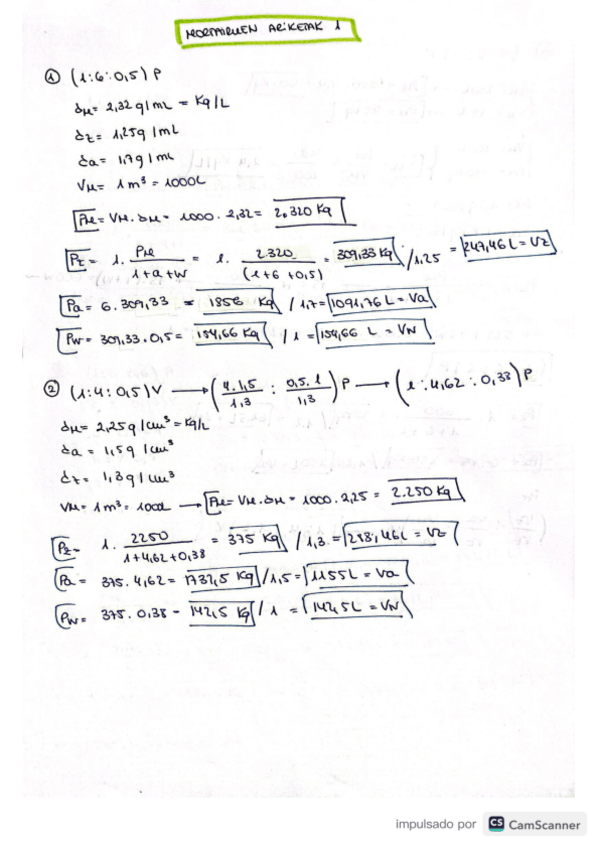 MORTAIRUEN ARIKETAK 1
① (1:6:0,5) P
dM = 2,32 g/mL = Kg/L
dz = 1,25 g/mL
da = 1,7 g/mL
VM = 1 m³ = 1000L
PM = VM · dM = 1000 · 2,32 = 2.320 Kg
Pz = 1 · PM / (1+a+w) = 1 · 2.320 / (1+6+0,5) = 309,33 Kg / 1,25 = 247,46 L = Vz
Pa = 6 · 309,33 = 1856 Kg / 1,7 = 1091,76 L = Va
Pw = 309,33 · 0,5 = 154,66 Kg / 1 = 154,66 L = Vw
② (1:4:0,5) V → (4·1,5 / 1,3 : 0,5·1 / 1,3) P → (1:4,62:0,38) P
dM = 2,25 g/cm³ = Kg/L
da = 1,5 g/cm³
dz = 1,3 g/cm³
VM = 1 m³ = 1000L → PM = VM · dM = 1000 · 2,25 = 2.250 Kg
Pz = 1 · 2250 / (1+4,62+0,38) = 375 Kg / 1,3 = 288,46 L = Vz
Pa = 375 · 4,62 = 1732,5 Kg / 1,5 = 1155 L = Va
Pw = 375 · 0,38 = 142,5 Kg / 1 = 142,5 L = Vw
impulsado por CS CamScanner